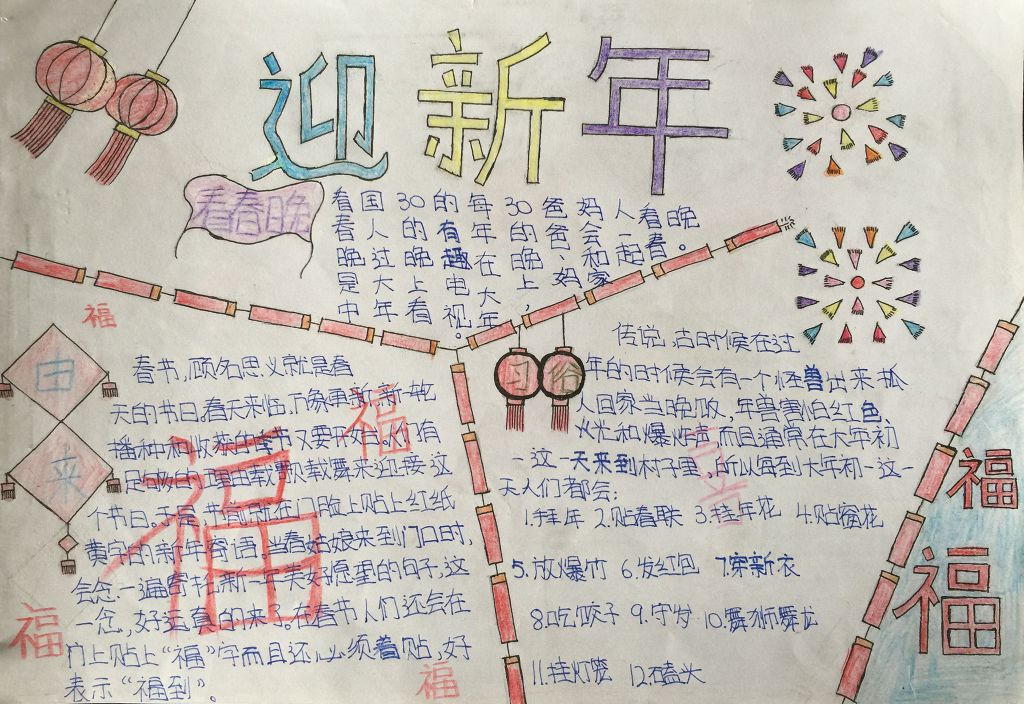 迎新年
看春晚
看春晚是中
国人过大年
30的晚上看
的有趣电视。
每年在大年
30的晚上,
爸爸、妈
妈会和家
人一起
看春
晚。
福
由
来
春节,顾名思义就是春
天的节日。春天来临,万象更新,新一轮
播种和收获的季节又要开始。人们有
足够的理由载歌载舞来迎接这
个节日。于是,节前就在门脸上贴上红纸
黄字的新年寄语。当春姑娘来到门口时,
会念一遍寄托新一年美好愿望的句子,这
一念,好运真的来了。在春节人们还会在
门上贴上“福”字而且还必须着贴,好
表示“福到”。
福
福
福
福
习俗
传说,古时候在过
年的时候会有一个怪兽出来抢
人回家当晚饭,年兽害怕红色,
火光和爆炸声,而且通常在大年初
一这一天来到村子里,所以每到大年初一这一
天人们都会:
1.拜年 2.贴春联 3.挂年花 4.贴窗花
5.放爆竹 6.发红包 7.穿新衣
8.吃饺子 9.守岁 10.舞狮舞龙
11.挂灯笼 12.磕头
福
福